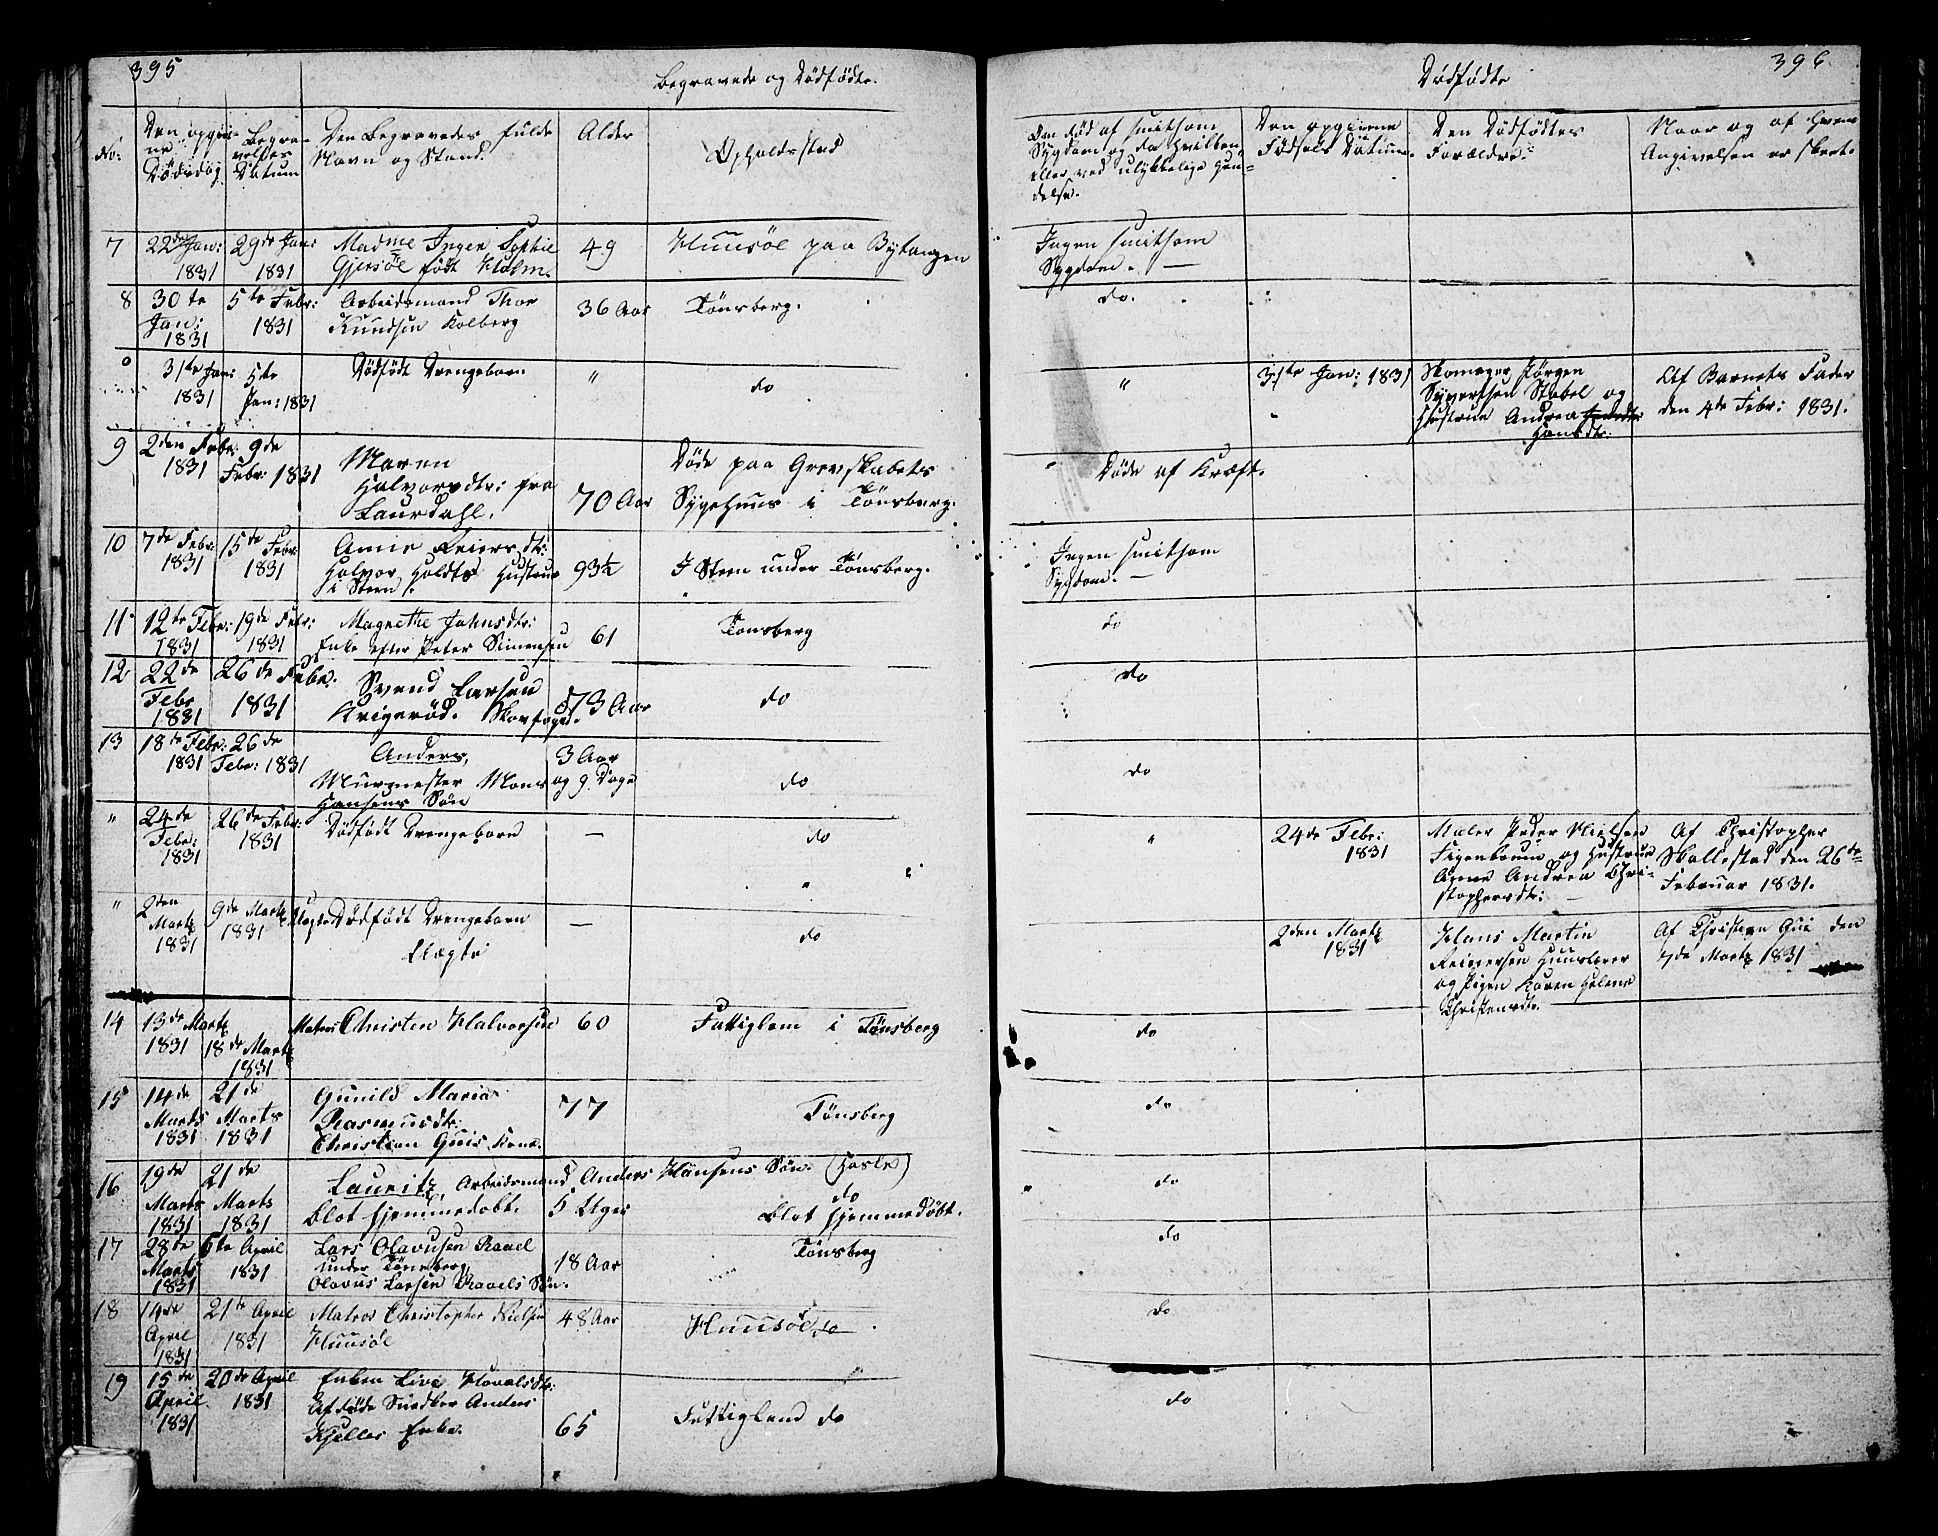 395
Begravede og Dödfödte.
No:
Den opgivne
Dödsdag
Begravelses
Datum
Den Begravedes fulde
Navn og Stand.
Alder
Opholdssted
7
22de Jan:
1831
29de Jan:
1831
Madme Inger Sophie
Gjersöe födt Holm.
49
Huusöe paa Bytangen
8
30te
Jan:
1831
5te Febr:
1831
Arbeidsmand Thor
Knudsen Kolberg
36 Aar
Tönsberg.
31te Jan:
1831
5te
Jan: 1831
Dödfödt Drengebarn
"
do
9
2den Febr:
1831
9de
Febr: 1831
Maren
Halvorsdtr: fra
Laurdahl.
70 Aar
Döde paa Grevskabets
Sygehuus i Tönsberg.
10
7de Febr:
1831
15de Febr
1831
Anne Reiersdtr:
Halvor Holdts Hustrue
i Steen.
93½
I Steen under Tönsberg.
11
12te Febr:
1831
19de Febr:
1831
Magrethe Johnsdtr:
Enke efter Peter Simensen
61
Tönsberg
12
22de
Febr
1831
26de Febr.
1831
Svend Larsen
Krigeröd. Skovfoged.
73 Aar
do
13
18de Febr:
1831
26de
Febr: 1831
Anders,
Murmester Mons
Hansens Sön
3 Aar
og 9 Dage
do
"
24de
Febr:
1831
26de Febr:
1831
Dödfödt Drengebarn
—
do
"
2den
Martz
1831
9de Martz
1831
Dödfödt Drengebarn
Uægte
—
do
14
13de Martz
1831
18de Martz
1831
Matros Christen Halvorsen
60
Fattiglem i Tönsberg
15
14de
Marts
1831
21de
Marts
1831
Gunild Maria
Rasmusdtr:
Christian Guis Kone.
77
Tönsberg
16
19de
Marts
1831
21de
Marts
1831
Lauritz, Arbeidsmand Anders Hansens Sön. (Hasle)
blot hjemmedöbt.
5 Uger
do
blot hjemmedöbt.
17
28de
Marts
1831
6te April
1831
Lars Olavusen Ravel
under Tönsberg
Olavus Larsen Ravels Sön.
18 Aar
Tönsberg
18
14de
April
1831
21te April
1831
Matros Christopher Nielsen
Huusöe
48 Aar
Huusöe do
19
15de
April
1831
20de April
1831
Enken Live
Afdöde Snedker Anders
Kjelles Enke.
65
Fattiglem do
396
Dödfödte
Om död af smitsom
Sygdom og da hvilken,
eller ved ulykkelige Hændelse.
Den opgivne
Födsels Datum.
Den Dödfödtes
Forældre.
Naar og af hvem
Angivelsen er skeet.
Ingen smitsom
Sygdom. —
do.
"
31te Jan: 1831
Skomager Jörgen
Syvertsen Stabel og
Hustrue Andrea
Hansdtr:
Af Barnets Fader
den 4de Febr: 1831.
Döde af Kræft.
Ingen smitsom
Sygdom. —
do
do
do
"
24de Febr:
1831
Maler Peder Nielsen
og Hustrue
Anne Andrea Christophersdtr:
Af Christopher
Skallestad den 26de
Februar 1831.
2den Martz
1831
Hans Martin
Reiersen
og Pigen Karen Helene
Christensdtr.
Af Christian Gui den
7de Martz 1831
do
do
do
do
do
do